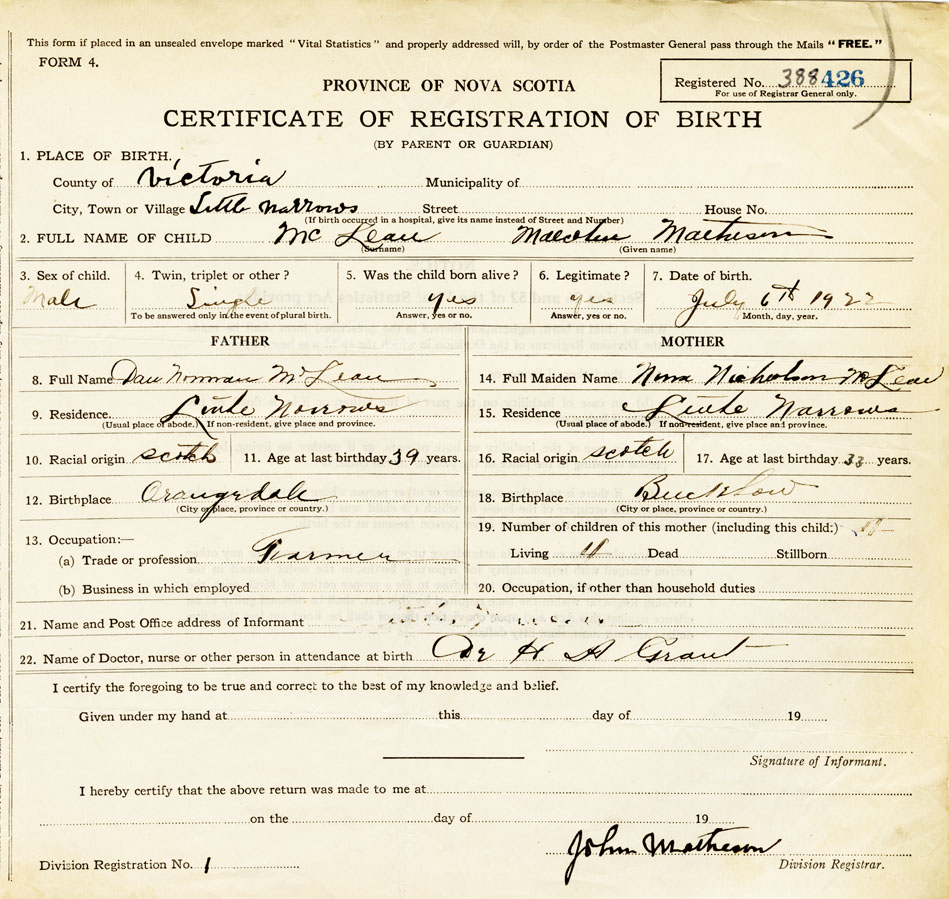 This form if placed in an unsealed envelope marked "Vital Statistics" and properly addressed will, by order of the Postmaster General pass through the Mails "FREE."
FORM 4.
Registered No. 388 426
For use of Registrar General only.
PROVINCE OF NOVA SCOTIA
CERTIFICATE OF REGISTRATION OF BIRTH
(BY PARENT OR GUARDIAN)
1. PLACE OF BIRTH.
County of Victoria Municipality of
City, Town or Village Little Narrows Street House No.
(If birth occurred in a hospital, give its name instead of Street and Number)
2. FULL NAME OF CHILD Mc Lean Malcolm Matheson
(Surname) (Given name)
3. Sex of child. 4. Twin, triplet or other? 5. Was the child born alive? 6. Legitimate? 7. Date of birth.
Male Single yes yes July 6th 1922
To be answered only in the event of plural birth. Answer, yes or no. Answer, yes or no. Month, day, year.
FATHER MOTHER
8. Full Name Dan Norman McLean 14. Full Maiden Name Nicholson McLean
9. Residence. Little Narrows 15. Residence Little Narrows
(Usual place of abode.) If non-resident, give place and province. (Usual place of abode.) If non-resident, give place and province.
10. Racial origin scotch 11. Age at last birthday 39 years. 16. Racial origin scotch 17. Age at last birthday 33 years.
12. Birthplace Orangedale 18. Birthplace
(City or place, province or country.) (City or place, province or country.)
13. Occupation:— 19. Number of children of this mother (including this child;)
(a) Trade or profession Farmer Living 11 Dead Stillborn
(b) Business in which employed 20. Occupation, if other than household duties
21. Name and Post Office address of Informant
22. Name of Doctor, nurse or other person in attendance at birth Dr H A Grant
I certify the foregoing to be true and correct to the best of my knowledge and belief.
Given under my hand at this day of 19
Signature of Informant.
I hereby certify that the above return was made to me at
on the day of 19
John Matheson
Division Registration No. 1 Division Registrar.